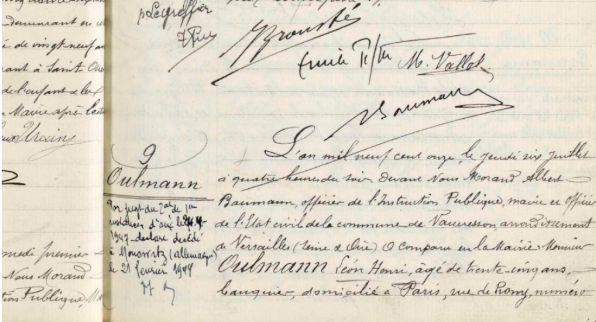 p Legreffier
Brousté
Emile
M. Vallot
Baumann
demeurant en ce
de vingt neuf an
à Saint Ou
de l'enfant & les
Mairie après lectu
medi premier
Nous Morand
tion Publique, Ma
9
Oulmann
Par jugt du Tal de 1ère
instance d'
1947 declaré décédé
à Monowitz (allemagne)
le 21 février 1944
L'an mil neuf cent onze, le jeudi six juillet
à quatre heures du soir devant Nous Morand Albert
Baumann, officier de l'Instruction Publique, maire et officier
de l'Etat civil de la commune de Vaucresson arrondissement
de Versailles (Seine & Oise) a comparu en la Mairie Monsieur
Oulmann Léon Henri, âgé de trente cinq ans,
banquier, domicilié à Paris, rue de Rome, numéro